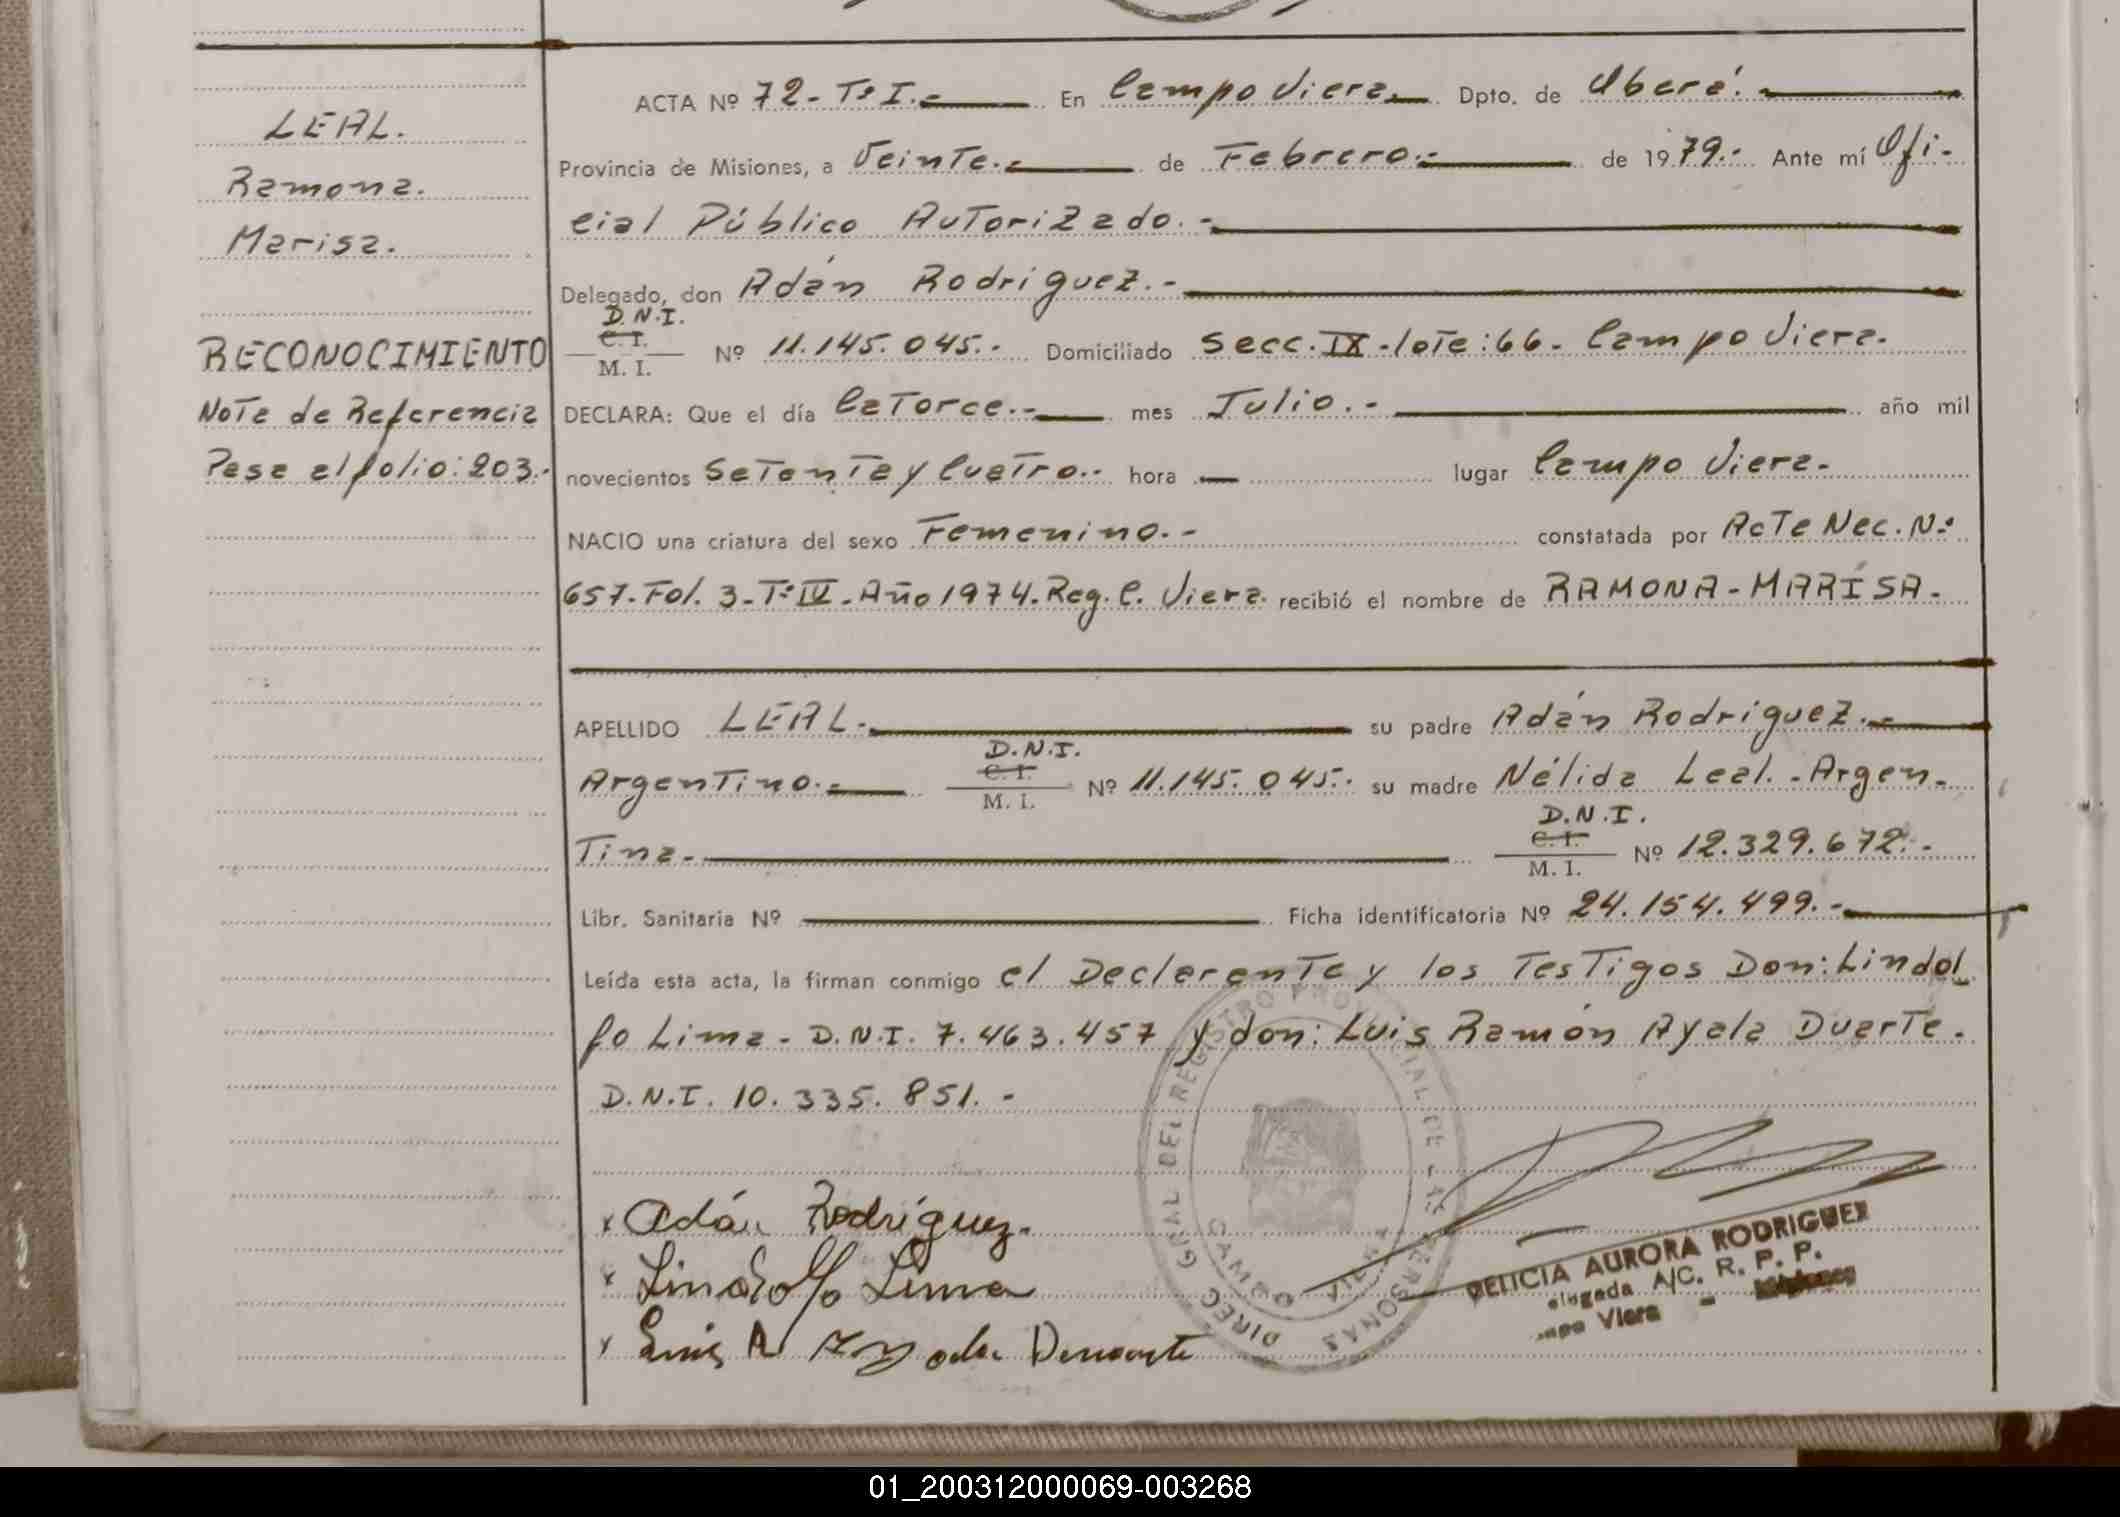 LEAL.
Ramona.
Marisa.
RECONOCIMIENTO
Nota de Referencia
Pasa al folio: 203.-
ACTA Nº 72- Tº I.- En Campo Viera. Dpto. de Oberá.-
Provincia de Misiones, a Veinte.- de Febrero.- de 1979.- Ante mí Ofi-
cial Público Autorizado.-
Delegado, don Adán Rodriguez.-
D.N.I.
C. I.
M. I. Nº 11.145.045.- Domiciliado Secc. IX-lote:66- Campo Viera.
DECLARA: Que el día Catorce.- mes Julio.- año mil
novecientos Setenta y Cuatro.- hora — lugar Campo Viera.
NACIO una criatura del sexo Femenino.- constatada por Acta Nac. Nº
657-Fol. 3-Tº IV-Año 1974-Reg. C. Viera. recibió el nombre de RAMONA-MARISA.
APELLIDO LEAL.- su padre Adán Rodriguez.-
D.N.I.
C. I.
Argentino.- M. I. Nº 11.145.045.- su madre Nélida Leal.-Argen-
D.N.I.
C. I.
tina.- M. I. Nº 12.329.672.-
Libr. Sanitaria Nº Ficha identificatoria Nº 24.154.499.-
Leída esta acta, la firman conmigo el Declarante y los Testigos Don: Lindol
fo Lima- D.N.I. 7.463.457 y don: Luis Ramón Ayala Duarte.
D.N.I. 10.335.851.-
x Adán Rodríguez.
x Lindolfo Lima
x Luis R Ayala Duarte
DIREC. GRAL DEL REGISTRO PROVINCIAL DE LAS PERSONAS
CAMPO VIERA
DELICIA AURORA RODRIGUEZ
elegada A/C. R. P. P.
Viera -
01_200312000069-003268